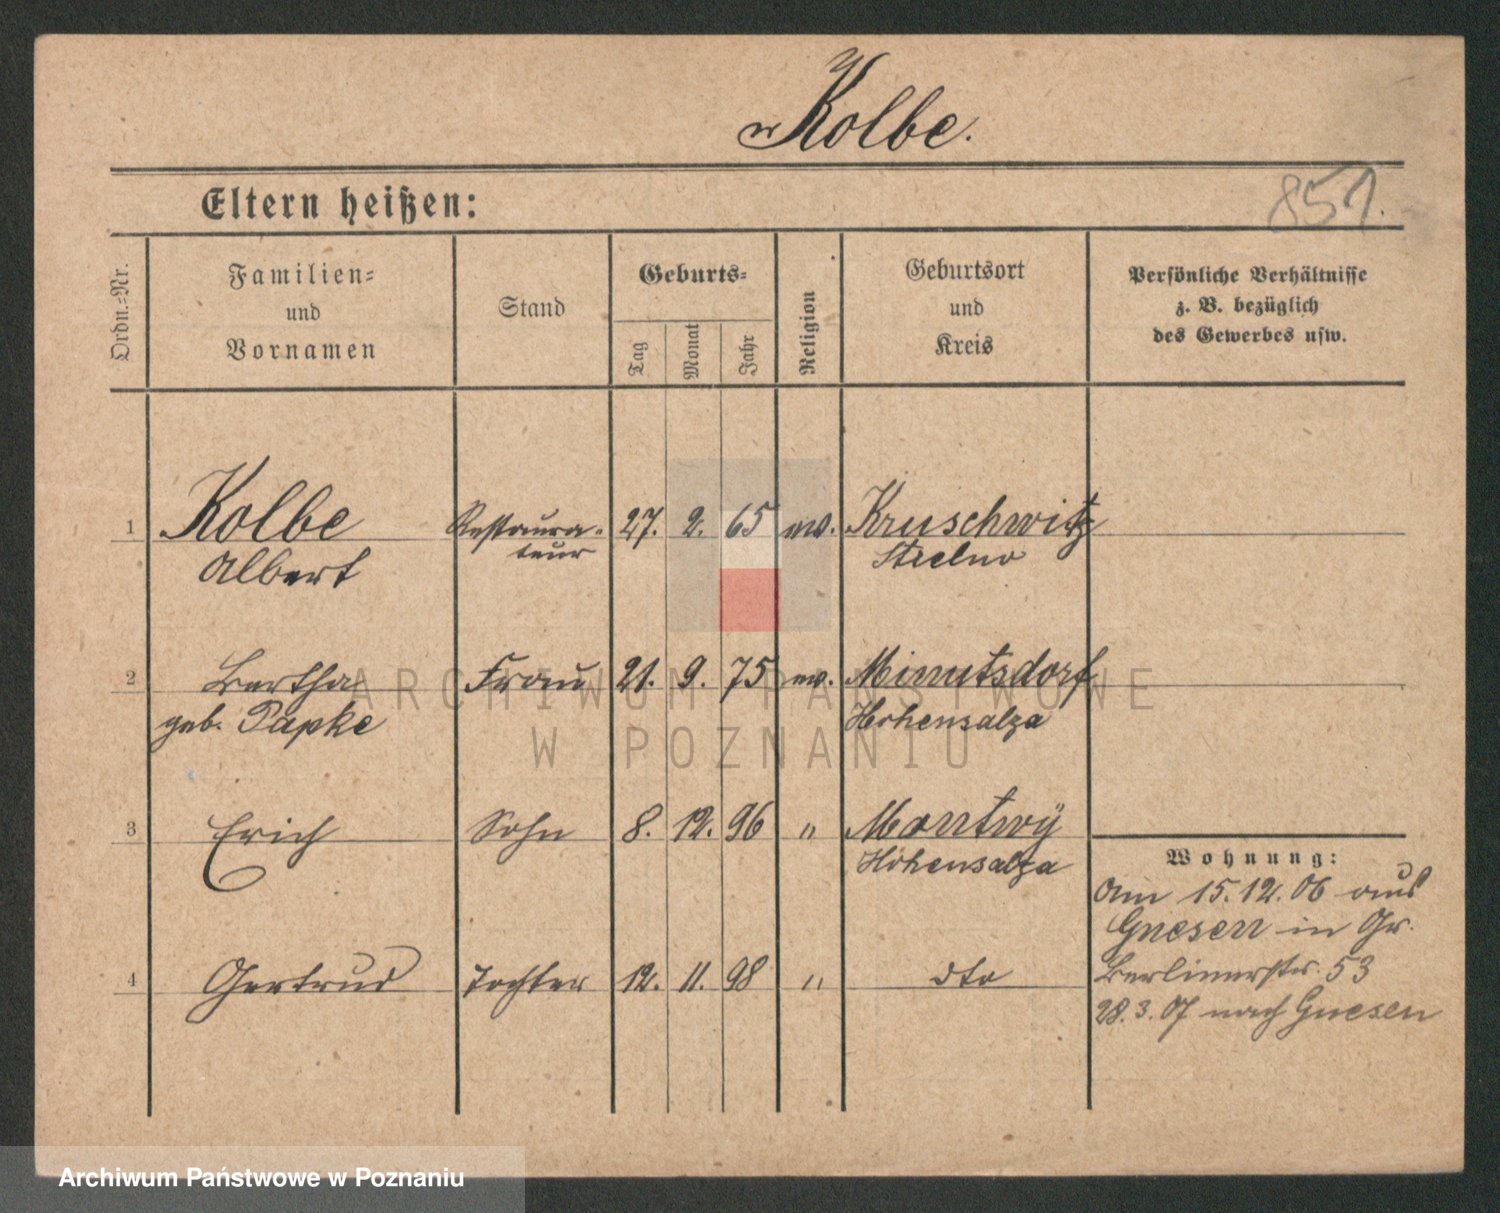 Kolbe.
Eltern heißen:
851.
Ordn.-Nr.
Familien-
und
Vornamen
Stand
Geburts-
Tag
Monat
Jahr
Religion
Geburtsort
und
Kreis
Persönliche Verhältnisse
z. B. bezüglich
des Gewerbes usw.
1 Kolbe Restaura- 27. 2. 65 ev. Kruschwitz
Albert teur Strelno
2 Bertha Frau 21. 9. 75 ev. Minutsdorf
geb. Papke Hohensalza
3 Erich Sohn 8. 12. 96 " Montwÿ
Hohensalza
4 Gertrud Tochter 12. 11. 98 " dto
Wohnung:
Am 15.12.06 aus
Gnesen in Gr.
Berlinerstr. 53
28.3.07 nach Gnesen
ARCHIWUM PAŃSTWOWE
W POZNANIU
Archiwum Państwowe w Poznaniu